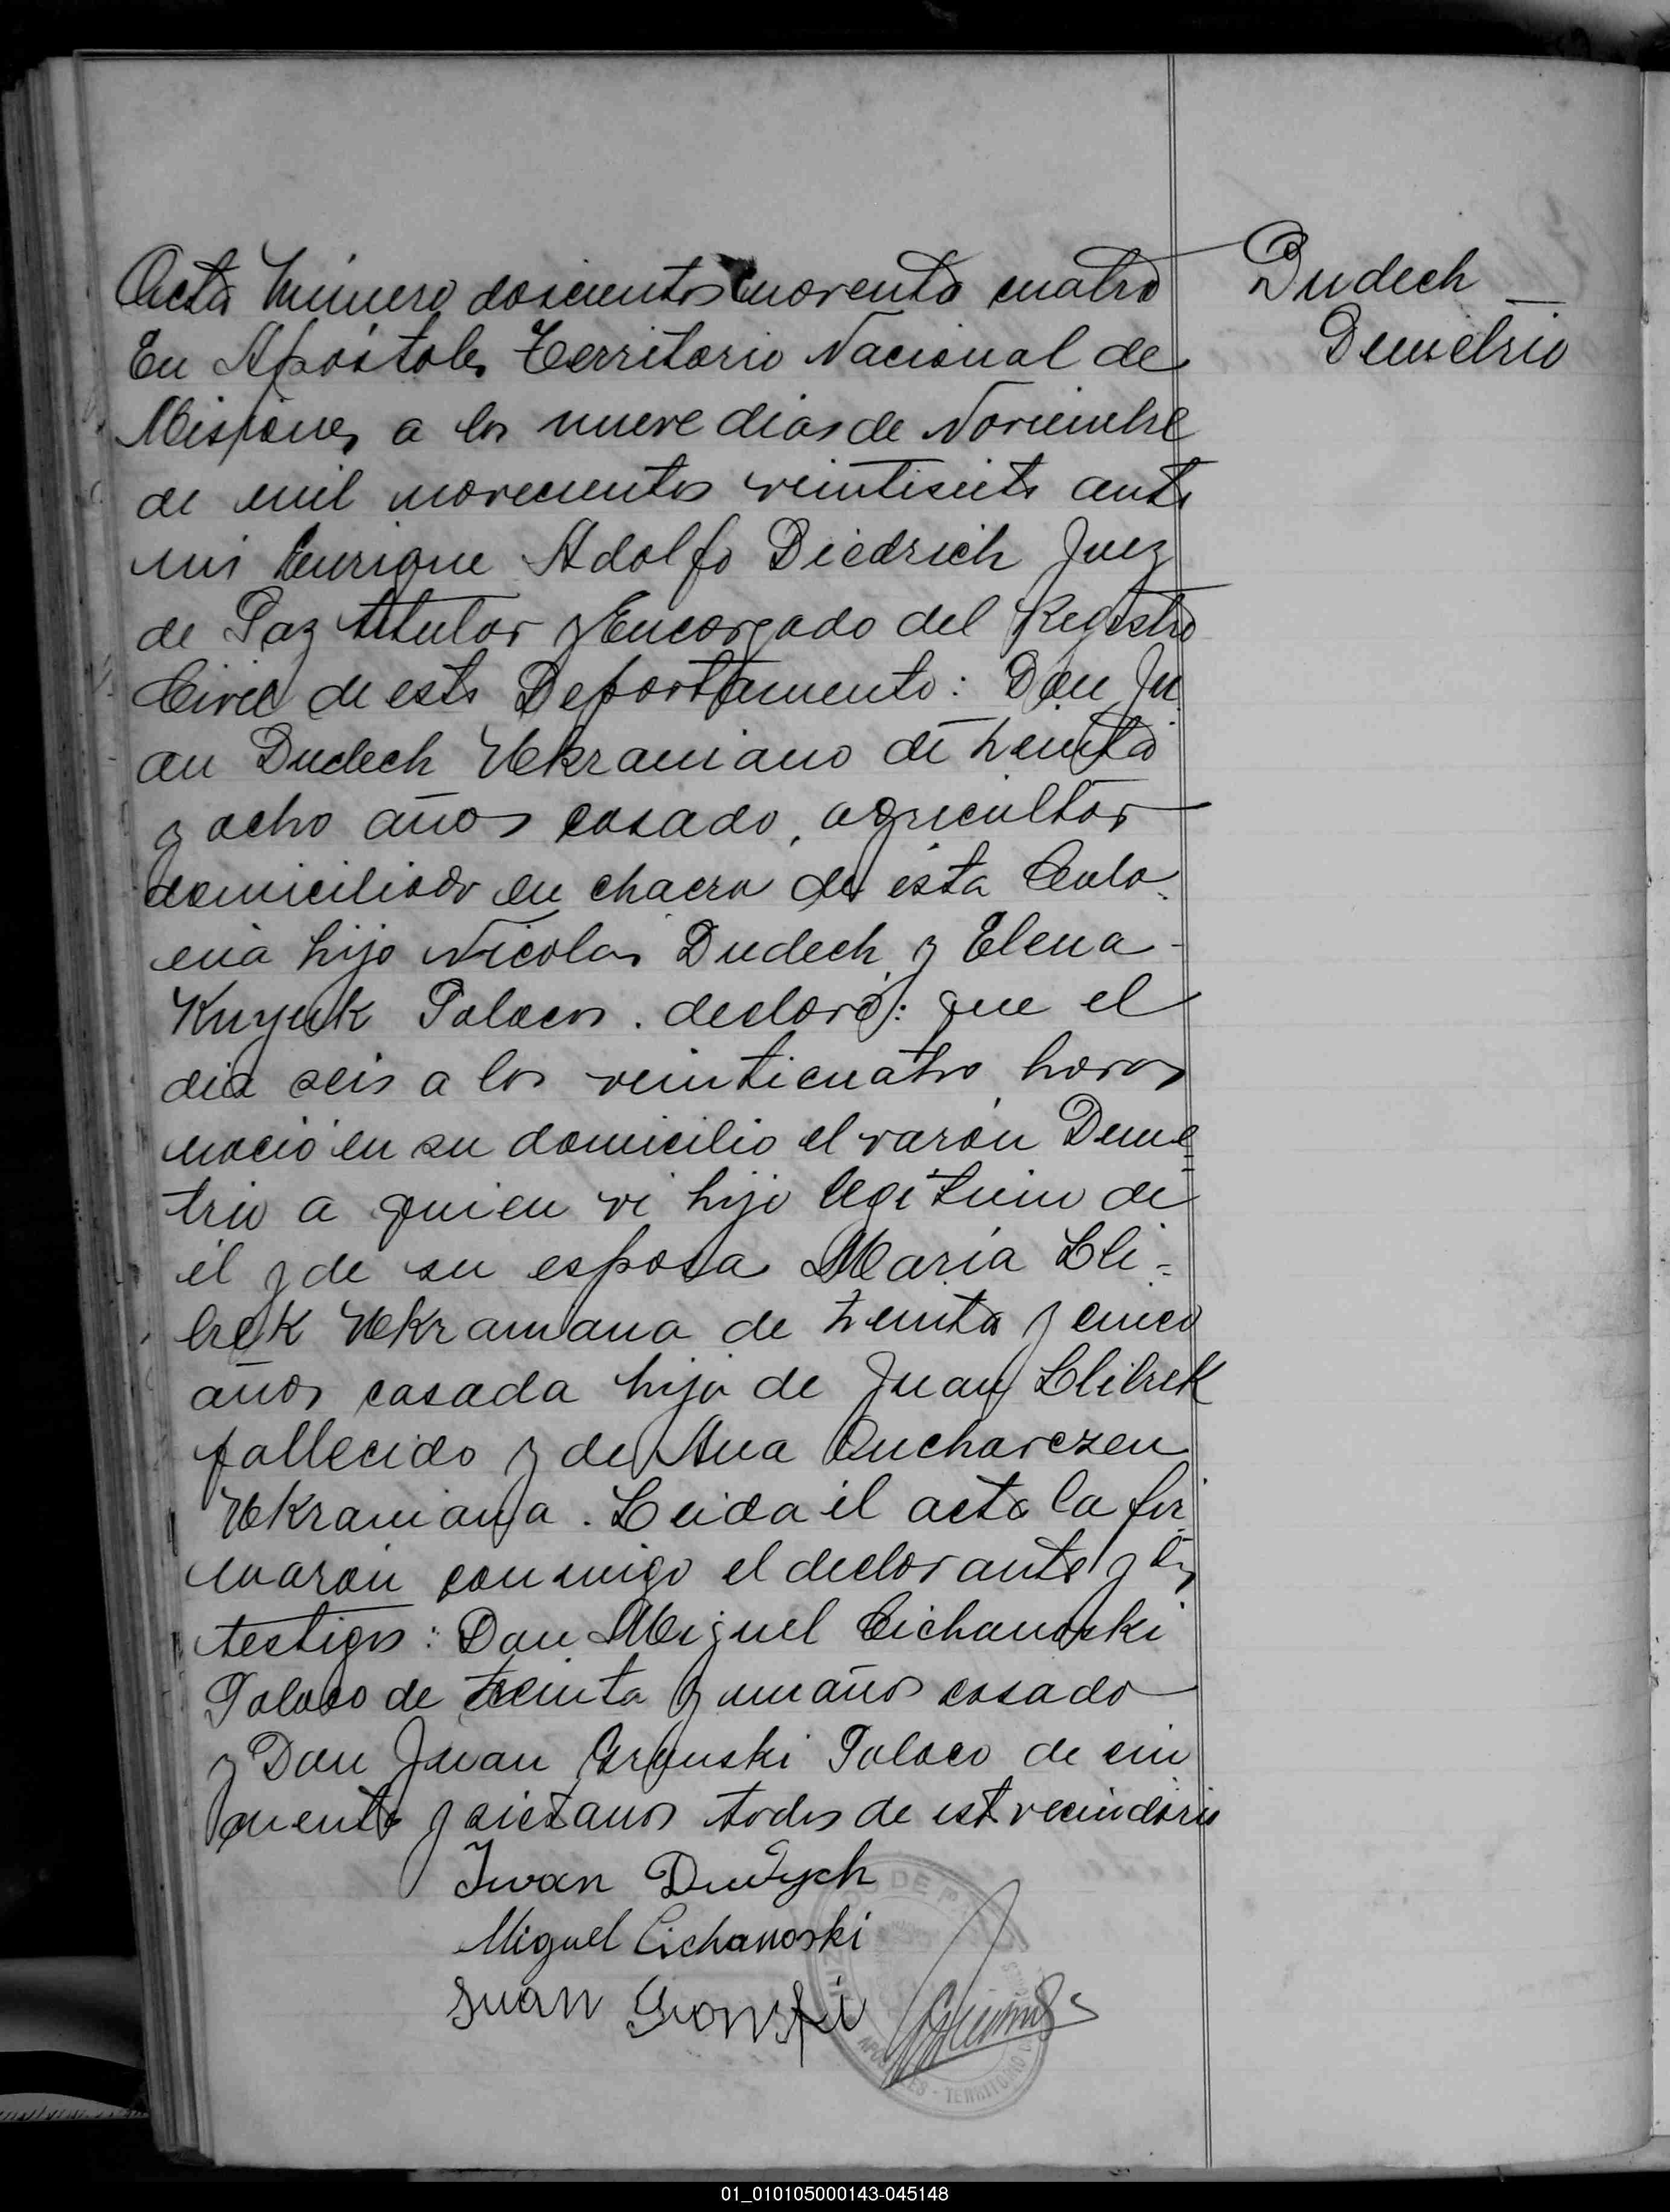 Acta Número doscientos noventa cuatro
En Apóstoles Territorio Nacional de
Misiones a los nueve dias de Noviembre
de mil novecientos veintisiete ante
mi Enrique Adolfo Diedrich Juez
de Paz titular y Encargado del Registro
Civil de este Departamento: Don Ju
an Dudech Ukraniano de treinta
y ocho años casado, agricultor
domiciliado en chacra de esta Colo-
nia hijo Nicolas Dudech y Elena
Polacos. declaró: que el
dia seis a las veinticuatro horas
nació en su domicilio el varón Deme
trio a quien vi hijo legitimo de
él y de su esposa Maria Lli=
brek Ukraniana de treinta y cinco
años casada hija de Juan Llibrek
fallecido y de Ana
Ukraniana. Leida el acta la fir
maron conmigo el declarante y los
testigos: Don Miguel Cichanoski
Polaco de treinta y un años casado
y Don Juan Gronski Polaco de cin
cuenta y siete años todos de este vecindario
Dudech
Demetrio
Iwan Dudych
Miguel Cichanoski
Juan Gronski
01_010105000143-045148